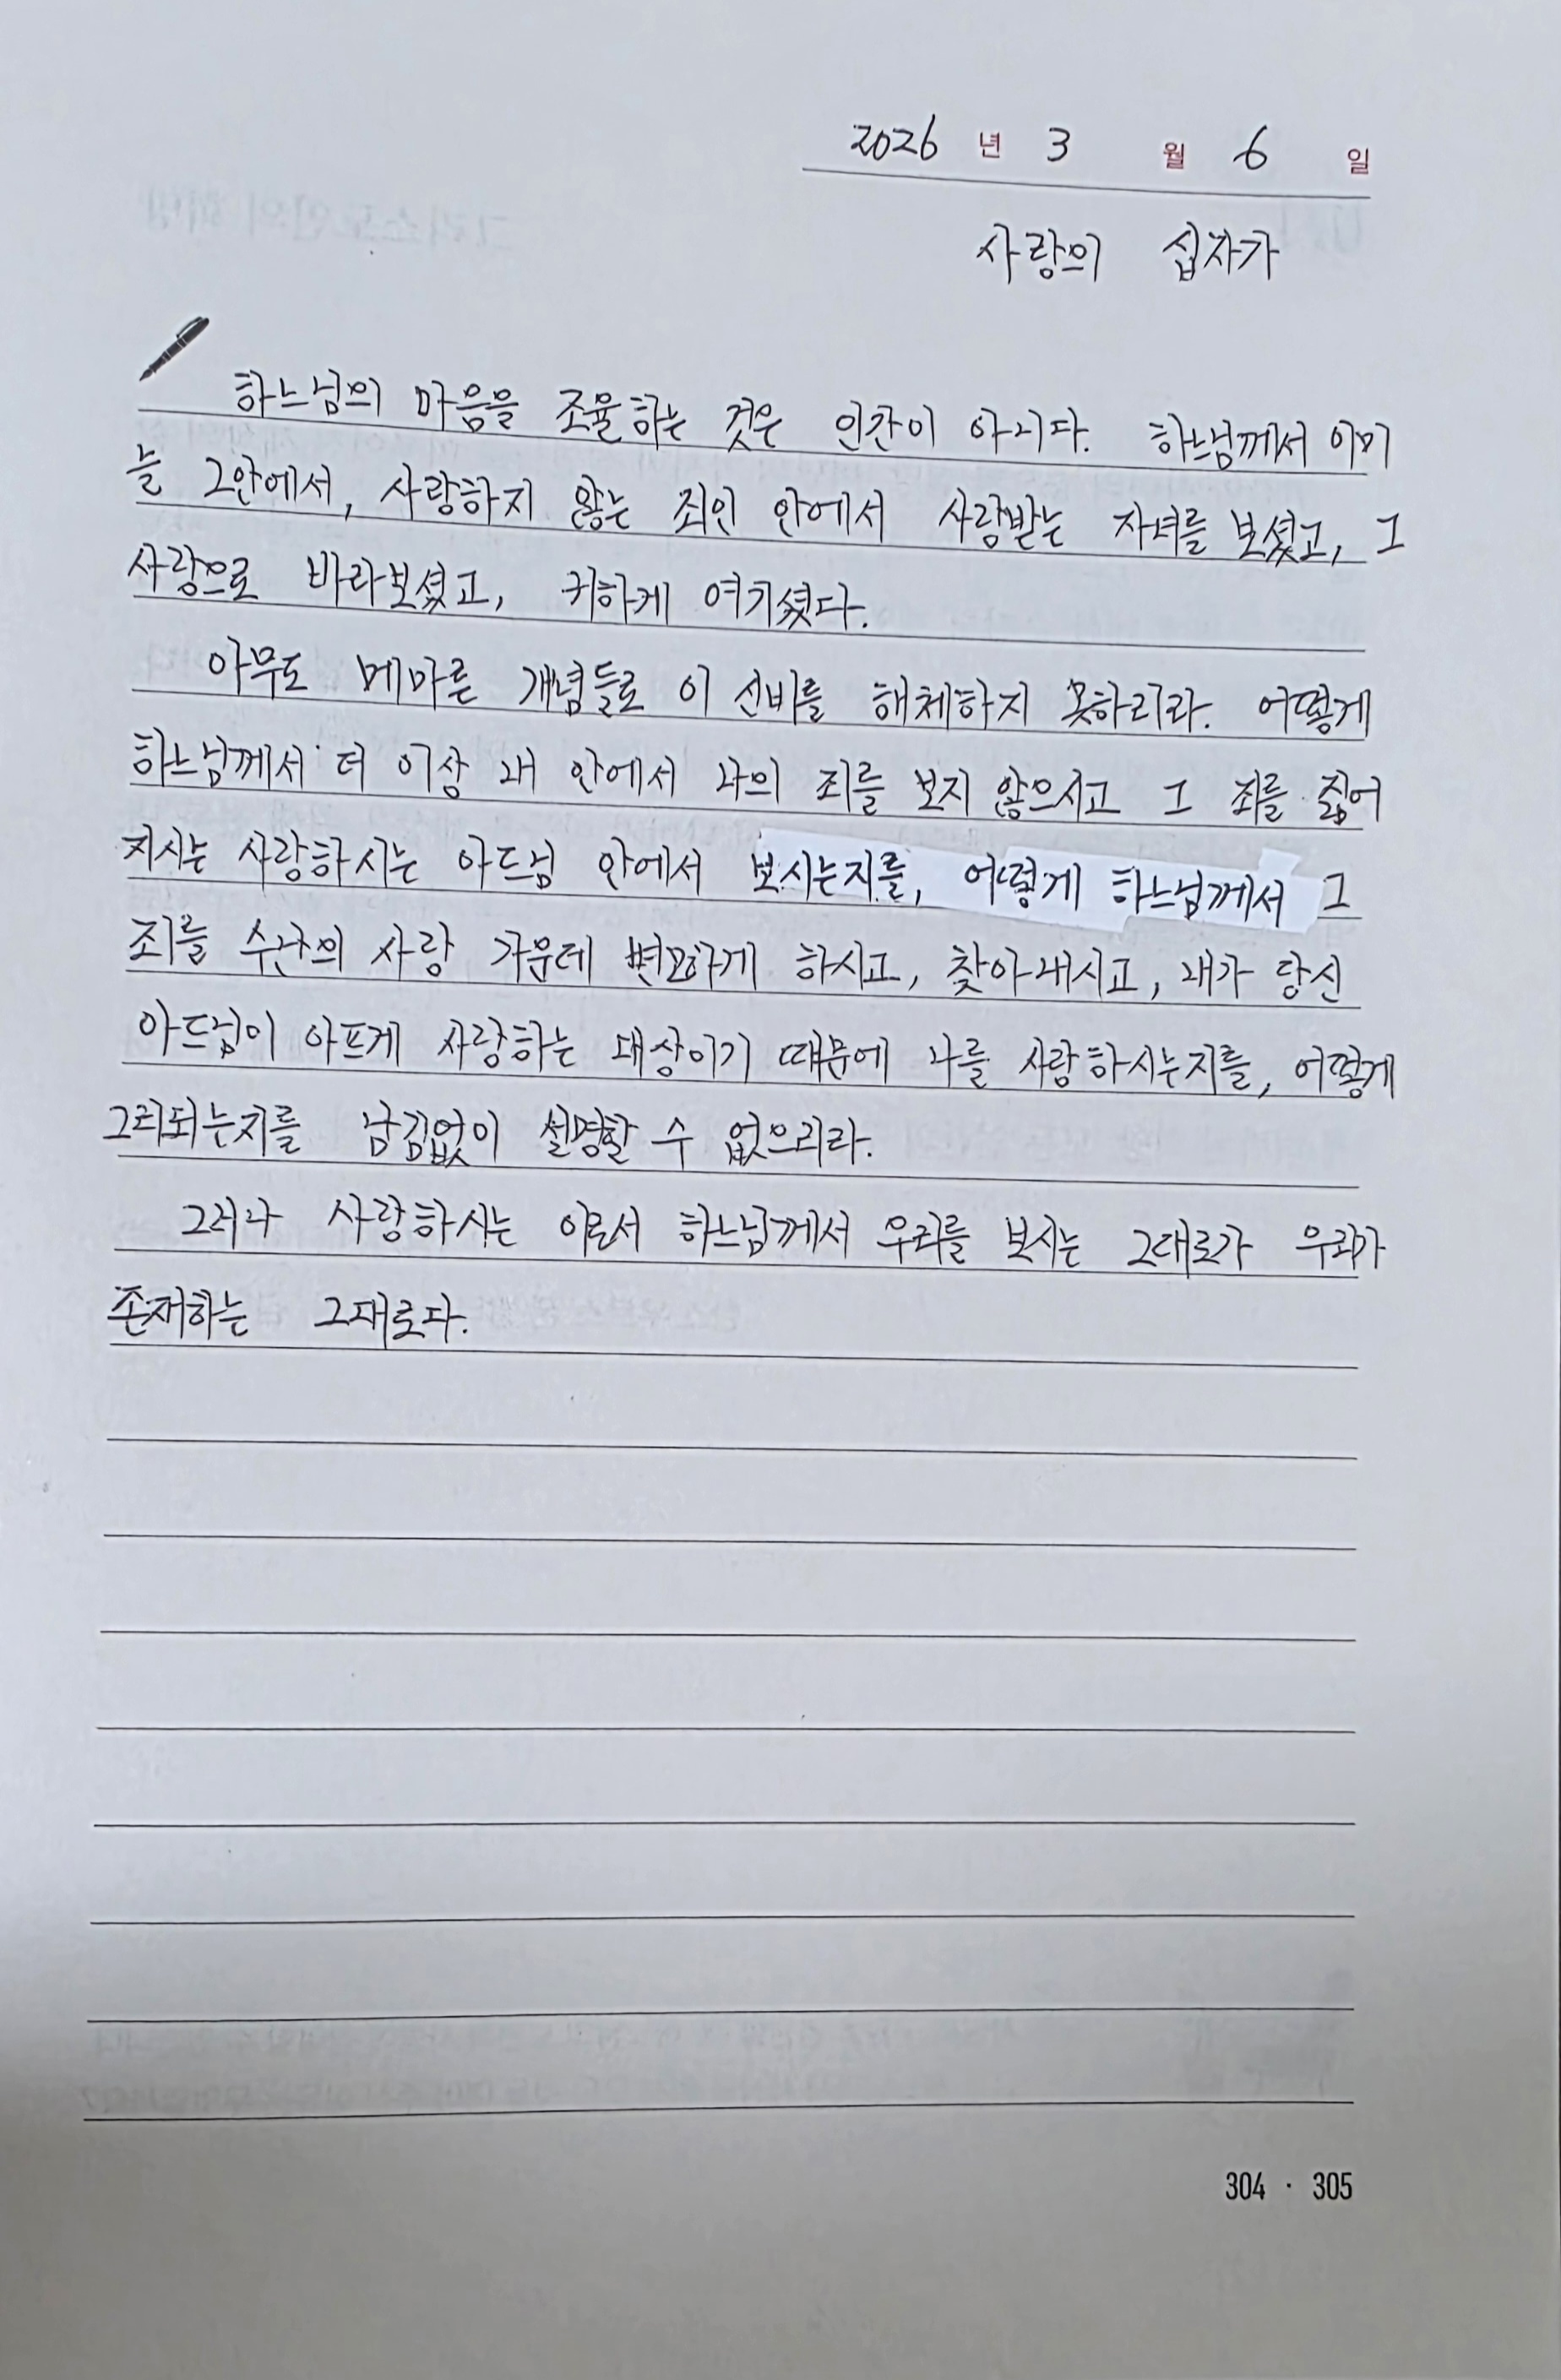 2026 년 3 월 6 일
사랑의 십자가
하느님의 마음을 조율하는 것은 인간이 아니다. 하느님께서 이미
늘 그안에서, 사랑하지 않는 죄인 안에서 사랑받는 자녀를 보셨고, 그
사랑으로 바라보셨고, 귀하게 여기셨다.
아무도 메마른 개념들로 이 신비를 해체하지 못하리라. 어떻게
하느님께서 더 이상 내 안에서 나의 죄를 보지 않으시고 그 죄를 짊어
지시는 사랑하시는 아드님 안에서 보시는지를, 어떻게 하느님께서 그
죄를 수난의 사랑 가운데 변모하게 하시고, 찾아내시고, 내가 당신
아드님이 아프게 사랑하는 대상이기 때문에 나를 사랑하시는지를, 어떻게
그리되는지를 남김없이 설명할 수 없으리라.
그러나 사랑하시는 이로서 하느님께서 우리를 보시는 그대로가 우리가
존재하는 그대로다.
304 · 305